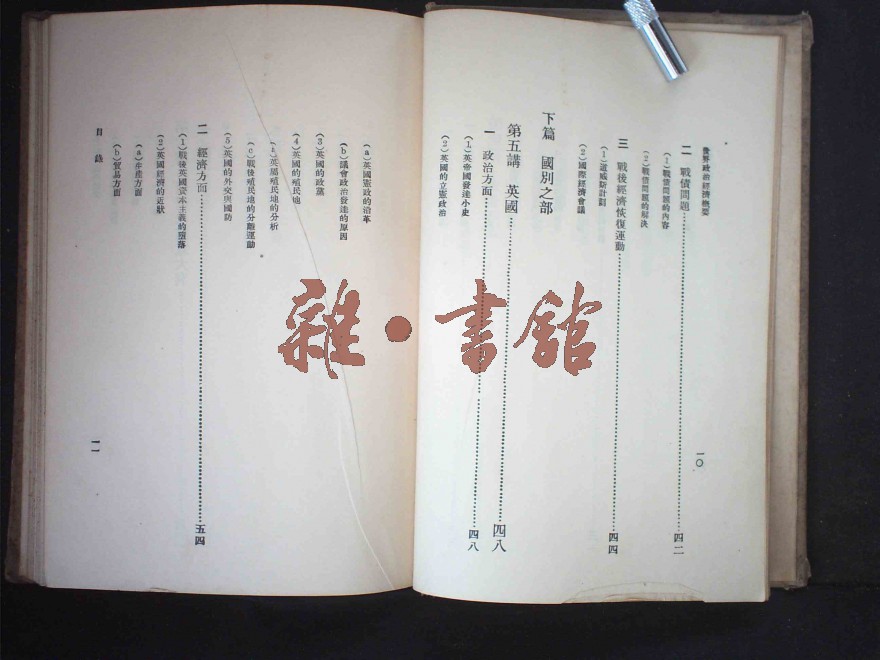 世界政治經濟概要
二 戰債問題 四二
(1)戰債問題的內容
(2)戰債問題的解決
三 戰後經濟恢復運動 四四
(1)道威斯計劃
(2)國際經濟會議
下篇 國別之部
第五講 英國 四八
一 政治方面 四八
(1)英帝國發達小史
(2)英國的立憲政治
一〇
(a)英國憲政的沿革
(b)議會政治發達的原因
(3)英國的政黨
(4)英國的殖民地
(a)英屬殖民地的分析
(c)戰後殖民地的分離運動
(5)英國的外交與國防
二 經濟方面 五四
(1)戰後英國資本主義的墮落
(2)英國經濟的近狀
(a)生產方面
(b)貿易方面
目錄
一一
雜·書館